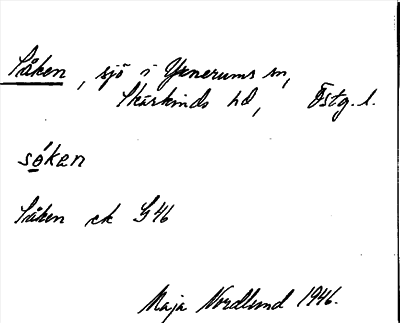 Såken, sjö i Yxnerums sn,
Skärkinds hd, Östg. l.
sóken
Såken ek G 46
Maja Nordlund 1946.